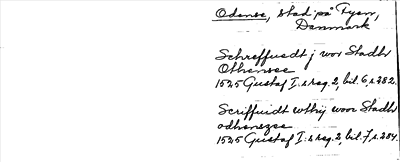 Odense, stad på Fyen,
Danmark
Schreffuedt j wor Stadh
Othensee
1525 Gustaf I:s reg. 2, bil. 6, s. 282.
Scriffuidt wthj woor Stadh
odhenszee
1525 Gustaf I:s reg. 2, bil. 7, s. 284.